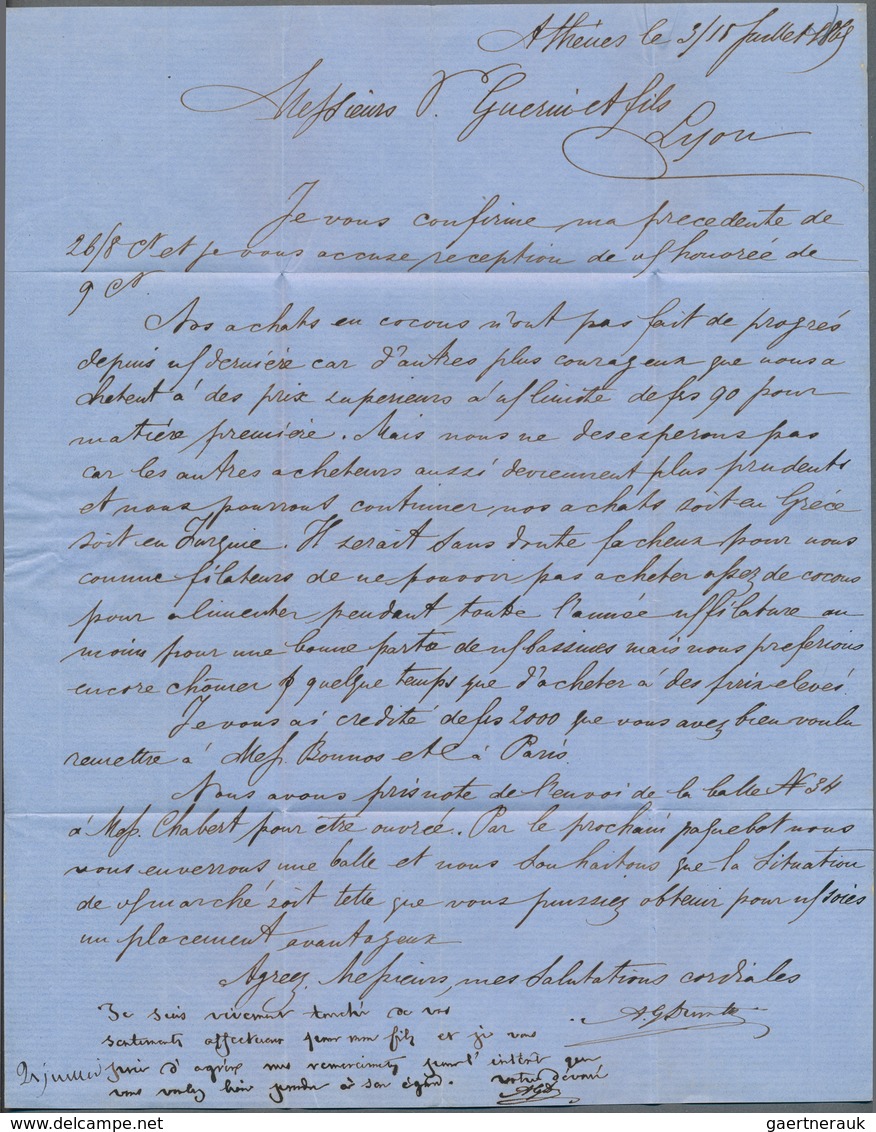 Athènes le 3/15 Juillet 1869
Messieurs V. Guerin et fils
Lyon
Je vous confirme ma precedente de
26/8 Ct et je vous accuse reception de vs honorée de
9 Ct
Nos achats en cocons n'ont pas fait de progrés
depuis ms derniére car d'autres plus courageux que nous a
chetent á des prix superieurs á vs limite de frs 90 pour
matiére premiére. Mais nous ne desesperons pas
car les autres acheteurs aussi deviennent plus prudents
et nous pourrons continuer nos achats soit en Gréce
soit en Turquie. Il serait sans doute facheux pour nous
comme filateurs de ne pouvoir pas acheter assez de cocons
pour alimenter pendant toute l'année ns filature au
moins pour une bonne partie de ns bassines mais nous preferions
encore chômer quelque temps que d'acheter á des prix elevés.
Je vous ai credité de frs 2000 que vous avez bien voulu
remettre á Mess. Bonnos et C á Paris.
Nous avons pris note de l'envoi de la balle N 34
á Mess. Chabert pour être ouvrée. Par le prochain paquebot nous
vous enverrons une balle et nous souhaitons que la situation
de vs marché soit telle que vous puissiez obtenir pour ns soies
un placement avantageux
Agreez, Messieurs, mes salutations cordiales
Je suis vivement touché de vos
sentiments affectueux pour mon fils et je vous
prie d'agréer mes remerciments pour l' intérêt que
vous voulez bien prendre à son égard. votre dévoué
AGD
21 juillet
gaertnerauk @ delcampe.net